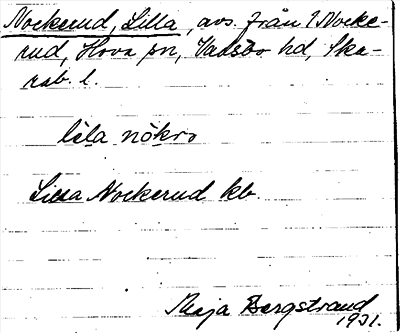 Nockerud, Lilla, avs. från ? Nocke-
rud, Hova sn, Vadsbo hd, Ska-
rab. l.
lila nökro
Lilla Nockerud kb.
Maja Bergstrand
1931.